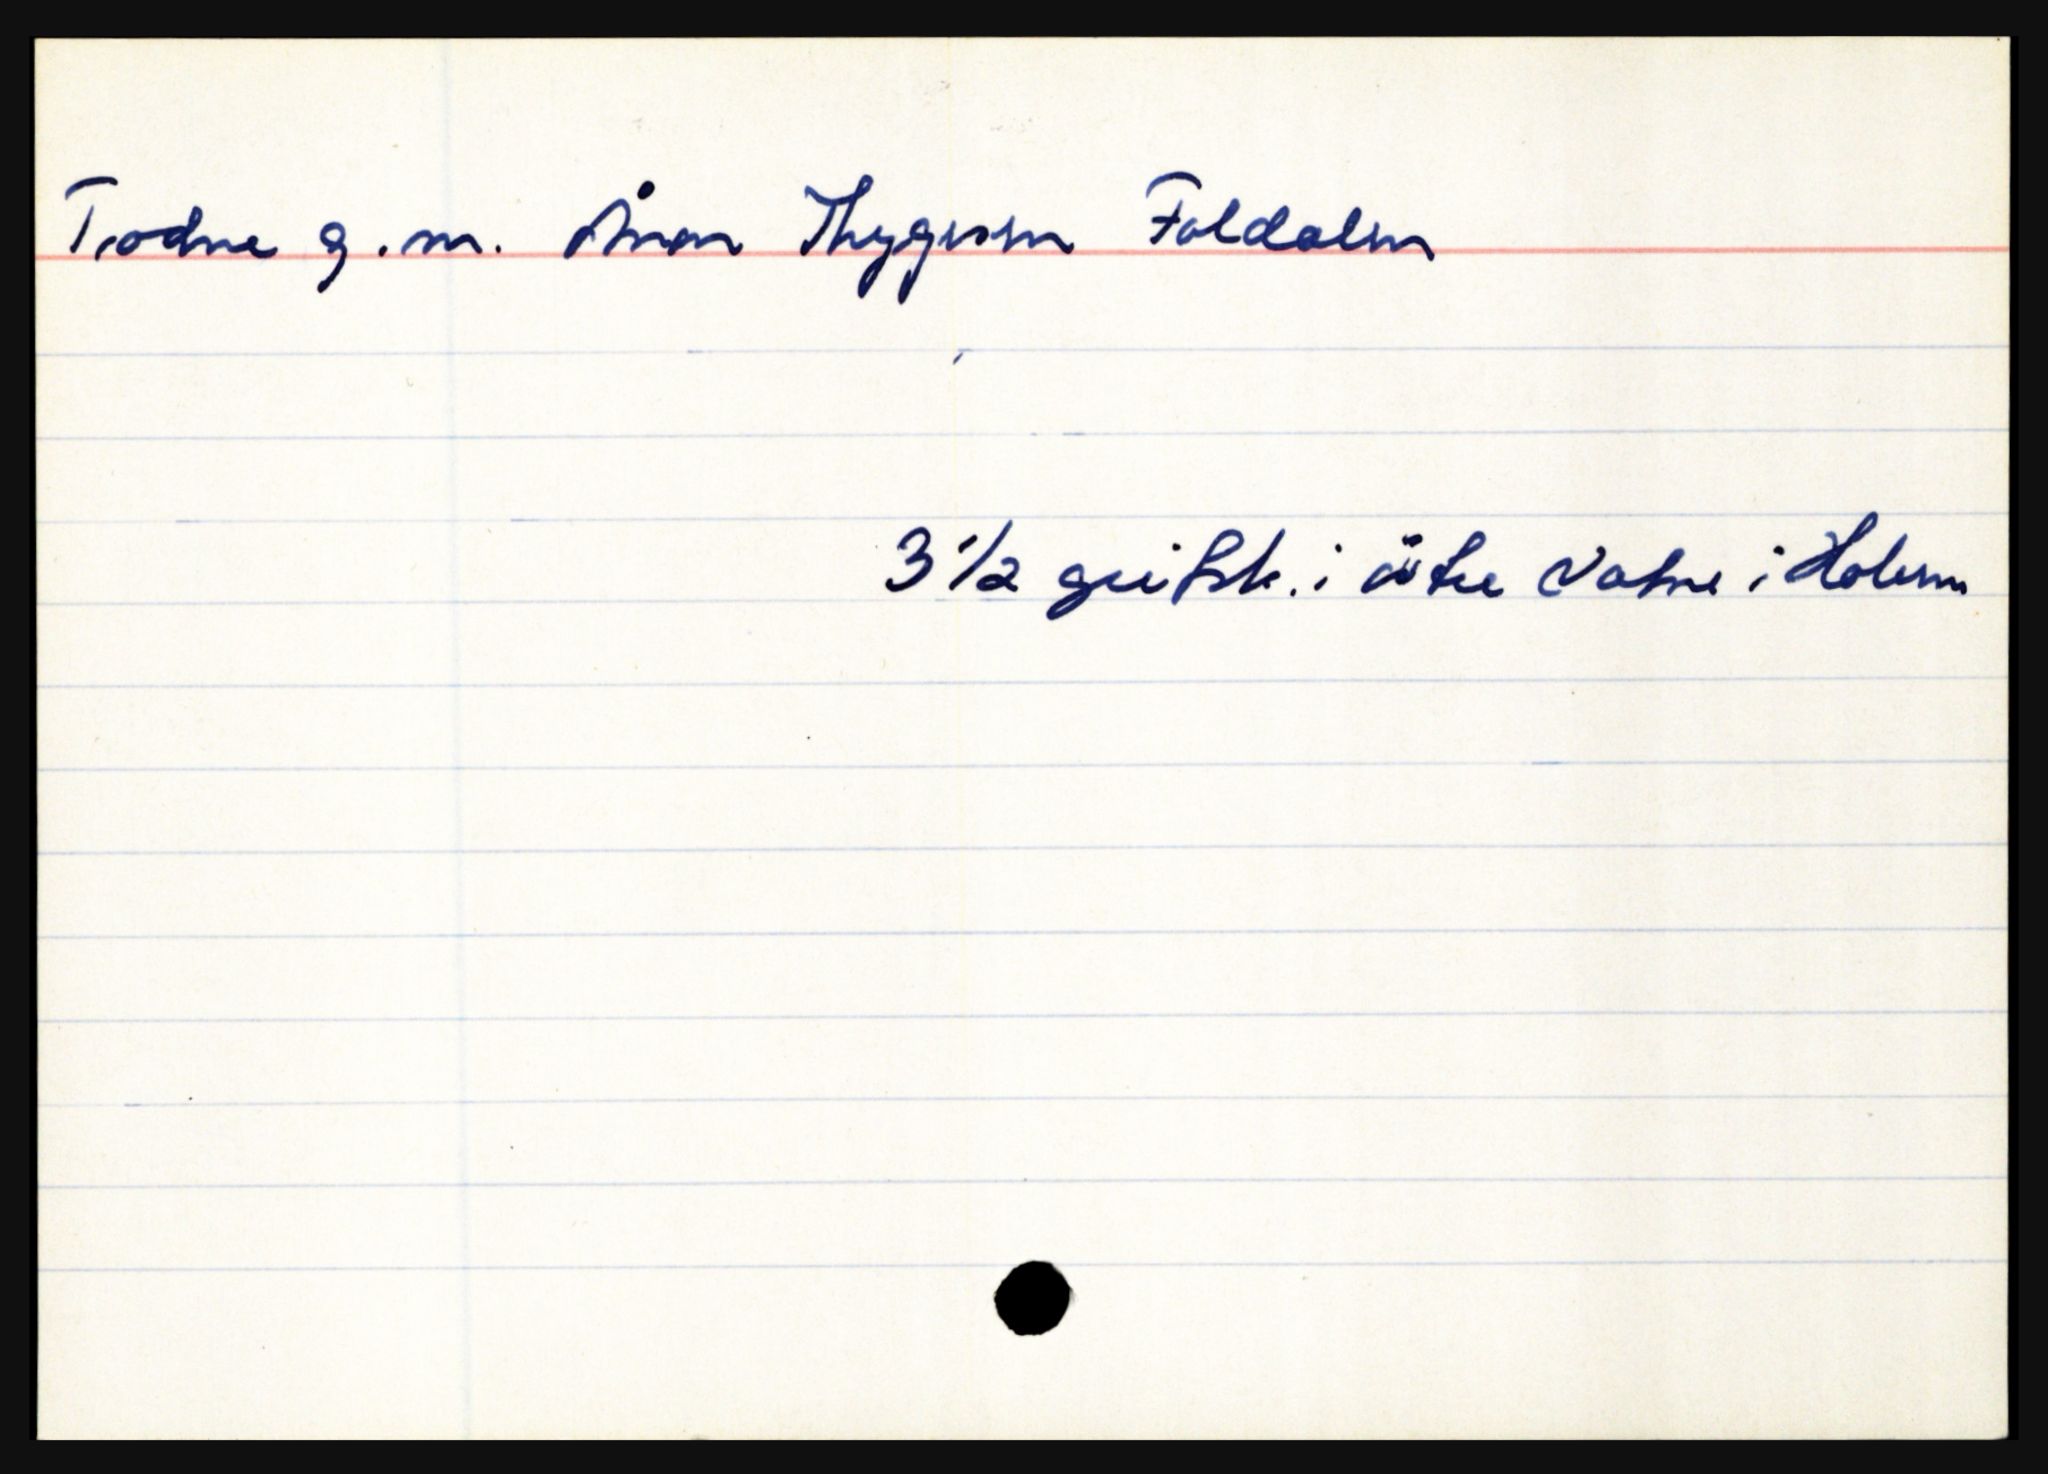 Trodne g.m. Ånon Thygesen Foldalen
3 1/2 geitsk. i östre Vatne i Holum